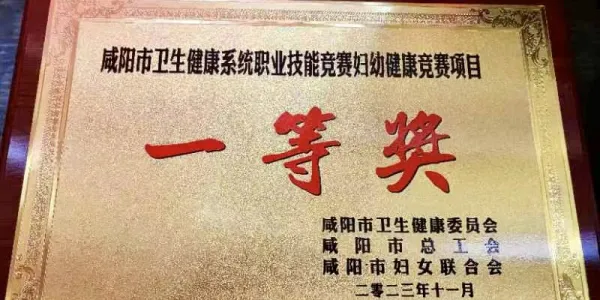 咸阳市卫生健康系统职业技能竞赛妇幼健康竞赛项目
一等奖
咸阳市卫生健康委员会
咸阳市总工会
咸阳市妇女联合会
二零二三年十一月